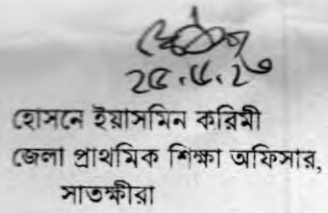 ২৫.৫.২৩
হোসনে ইয়াসমিন করিমী
জেলা প্রাথমিক শিক্ষা অফিসার,
সাতক্ষীরা